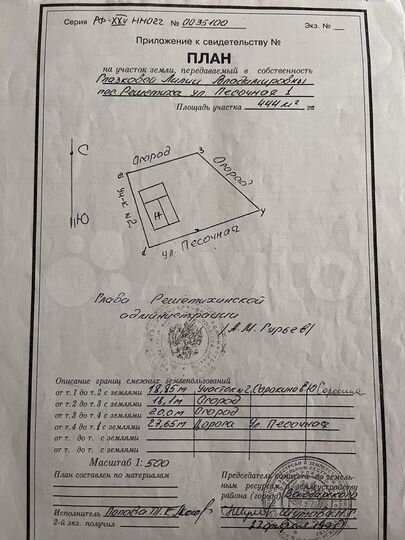 Серия РФ-XXV ННО22 № 0035100 Экз. №
Приложение к свидетельству №
ПЛАН
на участок земли, передаваемый в собственность
Глазковой Лилии Владимировны
пос. Решетиха ул. Песочная 1
Площадь участка 444 м² га
С
Ю
Огород
3
Огород
2
уч-к №2
Н
4
1
ул. Песочная
Глава Решетихинской
администрации
/А.М. Гирьев/
Avito
Описание границ смежных землепользований
от т.1 до т.2 с землями 18,85м Участок №2 Сорокина В.Ю Сорокина
от т.2 до т.3 с землями Огород
от т.3 до т.4 с землями 20,0м Огород
от т.4 до т.1 с землями 27,65м Дорога ул. Песочная
от т. до т. с землями
от т. до т. с землями
Масштаб 1:500
План составлен по материалам
Исполнитель Попова
2-й экз. получил
Председатель комитета по земель-
ным ресурсам и землеустройству
района (города) Володарского